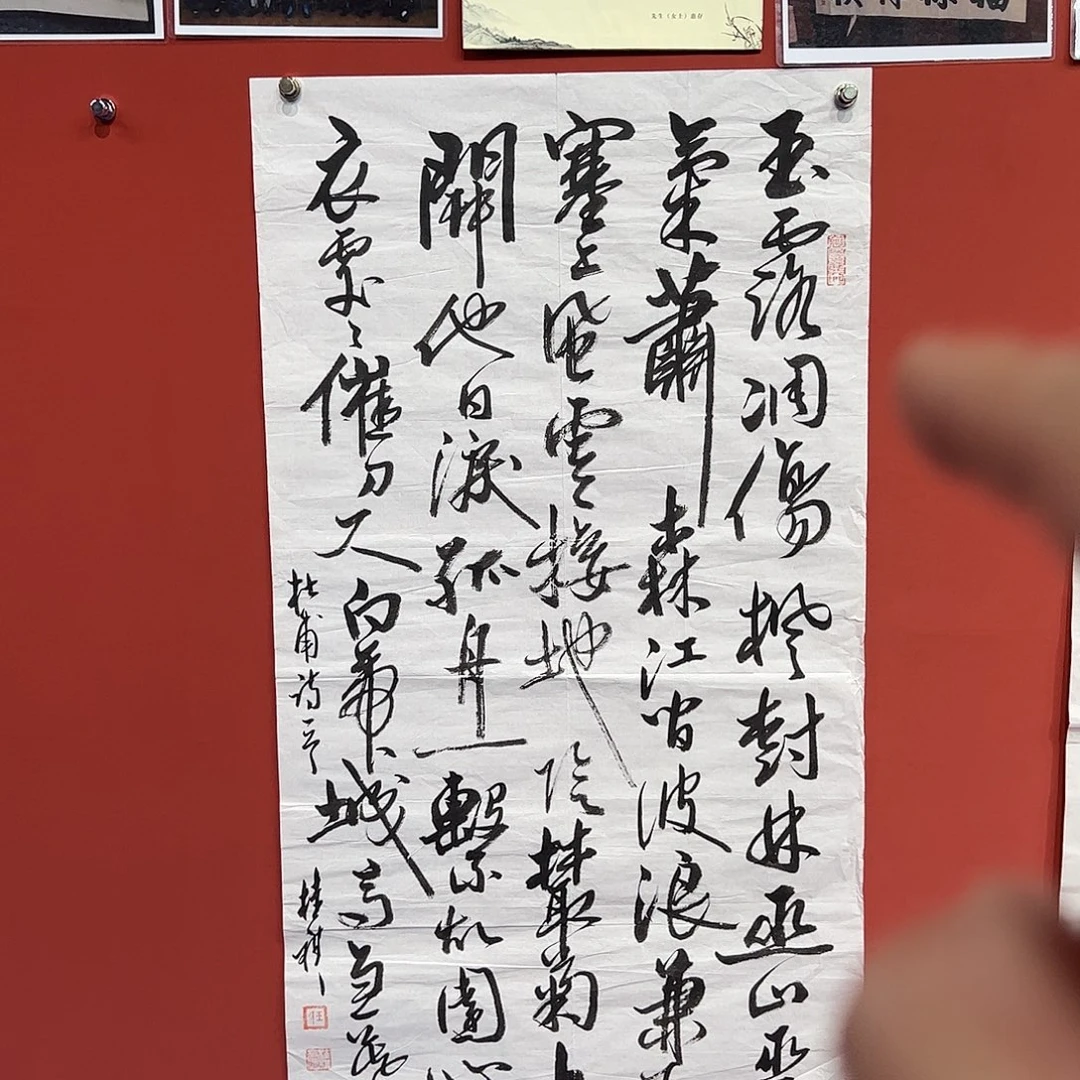 先生（女士）惠存
玉露凋傷楓樹林巫山巫
氣蕭森江間波浪兼
塞上風雲接地陰叢菊
開他日淚孤舟一繫故園心
衣處々催刀尺白帝城高急暮
杜甫诗